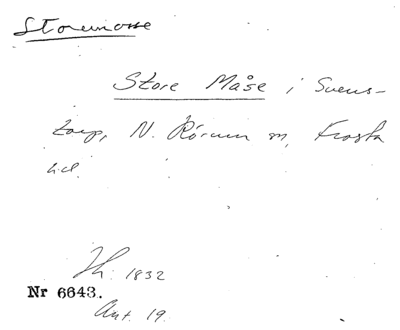 Storemosse
Store Måse i Svens-
torp, N. Rörum sn, Frosta
hd.
Jh. 1832
Nr 6643.
Ant. 19.